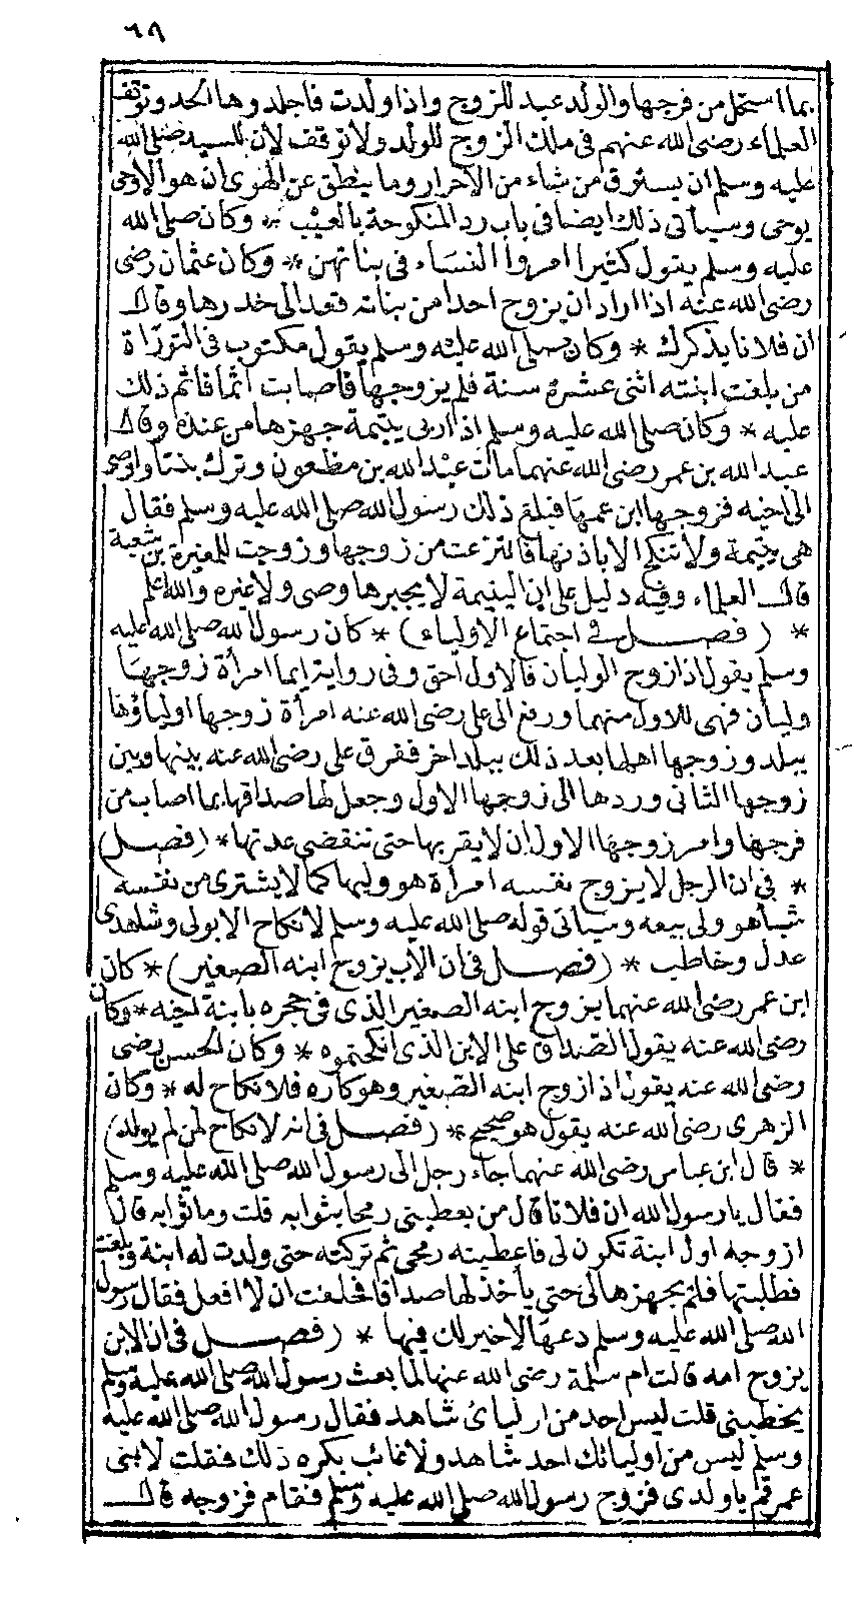 ٦٨
بما استحل من فرجها والولد عبد للزوج واذا ولدت فاجلدوها الحد وتوقف
العلماء رضى الله عنهم فى ملك الزوج للولد ولا توقف لأن للسيد صلى الله
عليه وسلم ان يسترق من شاء من الاحرار وما ينطق عن الهوى ان هو الاوحى
يوحى وسيأتى ذلك ايضا فى باب رد المنكوحة بالعيب * وكان صلى الله
عليه وسلم يقول كثيرا امروا النساء فى بناتهن * وكان عثمان رضى
رضى الله عنه اذا اراد ان يزوج احدا من بناته قعد الى خدرها وقال
ان فلانا يذكرك * وكان صلى الله عليه وسلم يقول مكتوب فى التوراة
من بلغت ابنته اثنى عشرة سنة فلم يزوجها فاصابت اثما فاثم ذلك
عليه * وكان صلى الله عليه وسلم اذا ربى يتيمة جهزها من عنده وقال
عبد الله بن عمر رضى الله عنهما مات عبد الله بن مظعون وترك بنتا واوصى
الى اخيه فزوجها ابن عمها فبلغ ذلك رسول الله صلى الله عليه وسلم فقال
هى يتيمة ولا تنكح الا باذنها فانتزعت من زوجها وزوجت للمغيرة بن شعبة
قال العلماء وفيه دليل على ان اليتيمة لا يجبرها وصى ولا غيره والله اعلم
* (فصل فى اجتماع الاولياء) * كان رسول الله صلى الله عليه
وسلم يقول اذا زوج الوليان فالاول احق وفى رواية ايما امرأة زوجها
وليان فهى للاول منهما ورفع الى على رضى الله عنه امرأة زوجها اولياؤها
ببلد وزوجها اهلها بعد ذلك ببلد اخر ففرق على رضى الله عنه بينها وبين
زوجها الثانى وردها الى زوجها الاول وجعل لها صداقها بما اصاب من
فرجها وامر زوجها الاول ان لا يقربها حتى تنقضى عدتها * (فصل)
* فى ان الرجل لا يزوج نفسه امرأة هو وليها كما لا يشترى من نفسه
شيأ هو ولى بيعه وسيأتى قوله صلى الله عليه وسلم لا نكاح الا بولى وشاهدى
عدل وخاطب * (فصل فى ان الأب يزوج ابنه الصغير) * كان
ابن عمر رضى الله عنهما يزوج ابنه الصغير الذى فى حجره بابنة اخيه * وكان
رضى الله عنه يقول الصداق على الابن الذى انكحتموه * وكان الحسن رضى
رضى الله عنه يقول اذا زوج ابنه الصغير وهو كاره فلا نكاح له * وكان
الزهرى رضى الله عنه يقول هو صحيح * (فصل فى انه لا نكاح لمن لم يولد)
* قال ابن عباس رضى الله عنهما جاء رجل الى رسول الله صلى الله عليه وسلم
فقال يا رسول الله ان فلانا قال من يعطينى رمحا بثوابه قلت وما ثوابه قال
ازوجه اول ابنة تكون لى فاعطيته رمحى ثم تركته حتى ولدت له ابنة وبلغت
فطلبتها فلم يجهزها لى حتى يأخذ لها صداقا فحلفت ان لا افعل فقال رسول
الله صلى الله عليه وسلم دعها لا خير لك فيها * (فصل فى ان الابن
يزوج امه قالت ام سلمة رضى الله عنها لما بعث رسول الله صلى الله عليه وسلم
يخطبنى قلت ليس احد من اوليائ شاهد فقال رسول الله صلى الله عليه
وسلم ليس من اوليائك احد شاهد ولا غائب يكره ذلك فقلت لابنى
عمر قم يا ولدى فزوج رسول الله صلى الله عليه وسلم فقام فزوجه قال